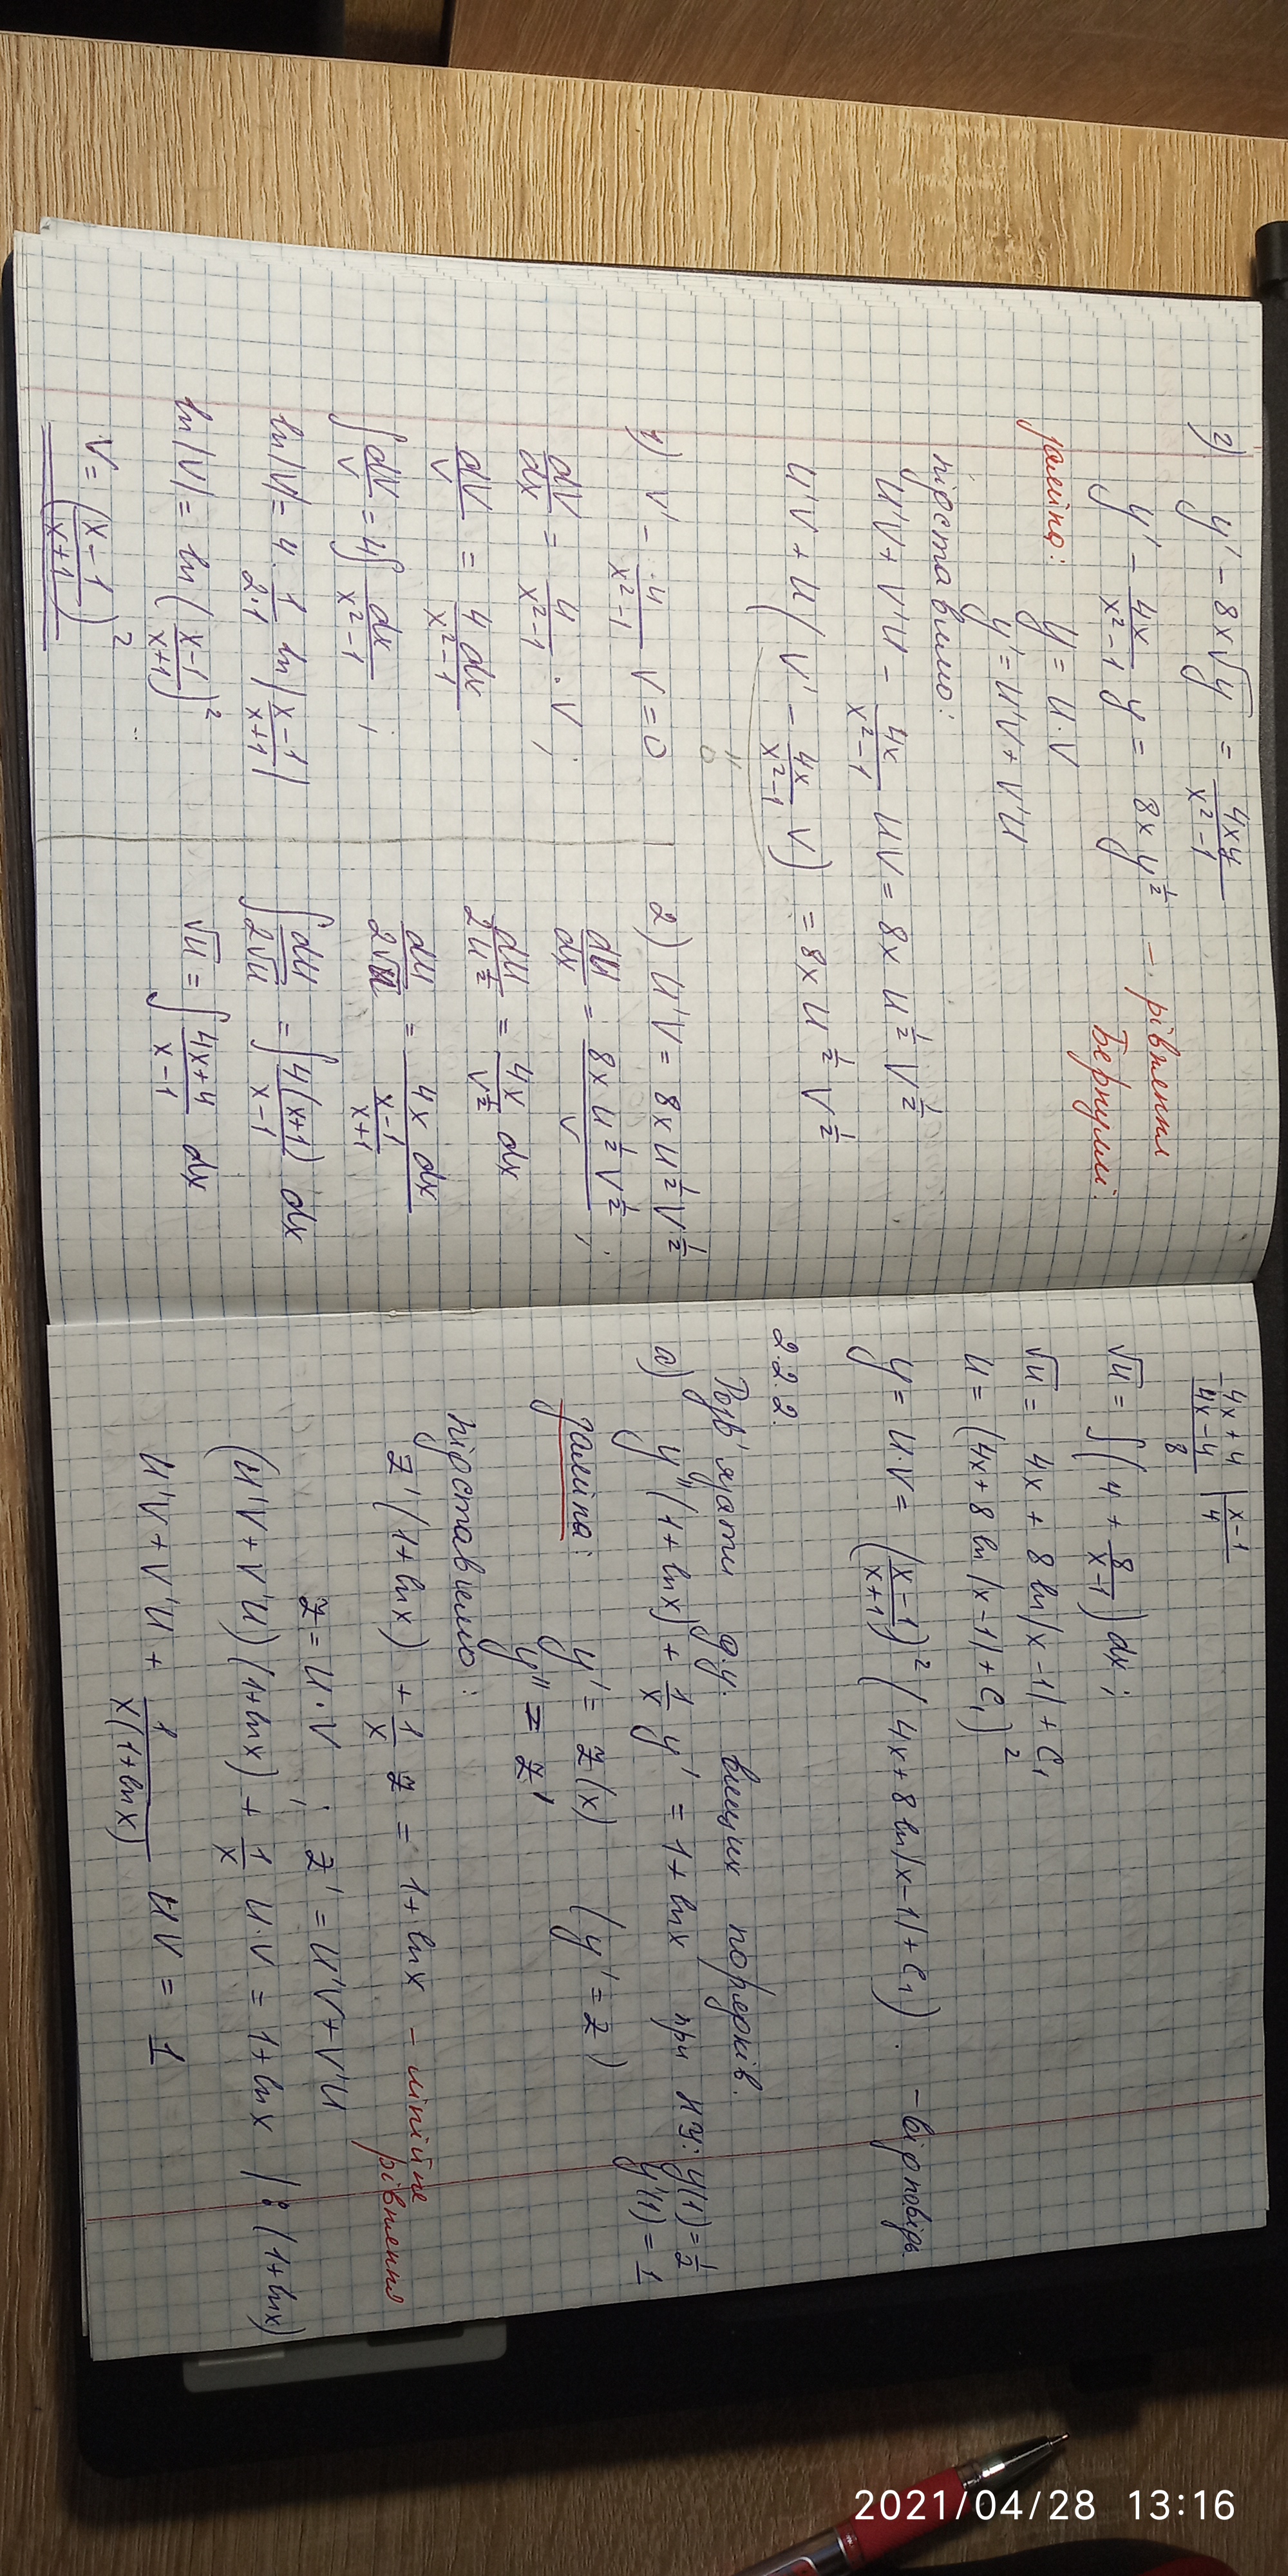 2) y' - 8x√y = 4xy/(x²-1)
y' - 4x/(x²-1) y = 8x y^(1/2) - рівняння
Бернуллі.
заміна: y = U·V
y' = U'V + V'U
підставимо:
U'V + V'U - 4x/(x²-1) UV = 8x U^(1/2) V^(1/2)
U'V + U(V' - 4x/(x²-1) V) = 8x U^(1/2) V^(1/2)
"
0
1) V' - 4/(x²-1) V = 0
dV/dx = 4/(x²-1) · V ;
dV/V = 4 dx/(x²-1)
∫ dV/V = 4∫ dx/(x²-1) ;
ln|V| = 4 · 1/(2·1) ln|(x-1)/(x+1)|
ln|V| = ln((x-1)/(x+1))²
V = ((x-1)/(x+1))²
2) U'V = 8x U^(1/2) V^(1/2)
dU/dx = 8x U^(1/2) V^(1/2)/V ;
dU/(2U^(1/2)) = 4x/V^(1/2) dx
dU/(2√U) = 4x dx/((x-1)/(x+1))
∫ dU/(2√U) = ∫ 4(x+1)/(x-1) dx
√U = ∫ (4x+4)/(x-1) dx
-4x+4 | x-1
4x-4 | 4
8
√U = ∫(4 + 8/(x-1)) dx ;
√U = 4x + 8 ln|x-1| + C₁
U = (4x + 8 ln|x-1| + C₁)²
y = U·V = ((x-1)/(x+1))² (4x + 8 ln|x-1| + C₁) . - відповідь
2.2.2.
Розв'язати д.у. вищих порядків.
а) y''(1+lnx) + 1/x y' = 1+lnx при НУ: y(1) = 1/2
y'(1) = 1
заміна: y' = z(x) (y' = z)
y'' = z'
підставимо:
z'(1+lnx) + 1/x z = 1+lnx - лінійне
рівняння
z = U·V ; z' = U'V + V'U
(U'V + V'U)(1+lnx) + 1/x U·V = 1+lnx | : (1+lnx)
U'V + V'U + 1/(x(1+lnx)) UV = 1
2021/04/28 13:16